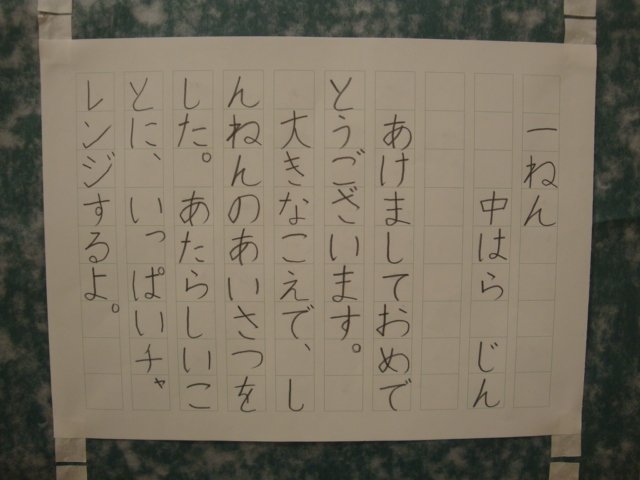 一ねん
中はら じん
あけましておめで
とうございます。
大きなこえで、し
んねんのあいさつを
した。 あたらしいこ
とに、いっぱいチャ
レンジするよ。